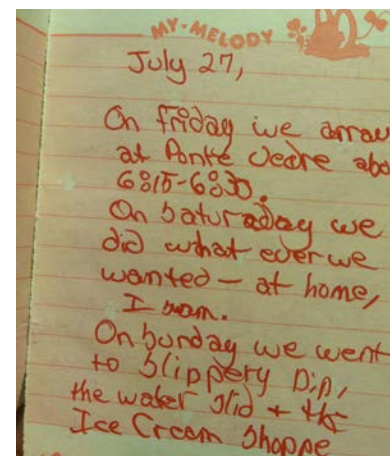 MY-MELODY
July 27,
On friday we arrav
at Ponte Vedre abo
6:15-6:30.
On Saturaday we
did what ever we
wanted - at home,
I swam.
On Sunday we went
to Slippery Dip,
the water slid + the
Ice Cream Shoppe